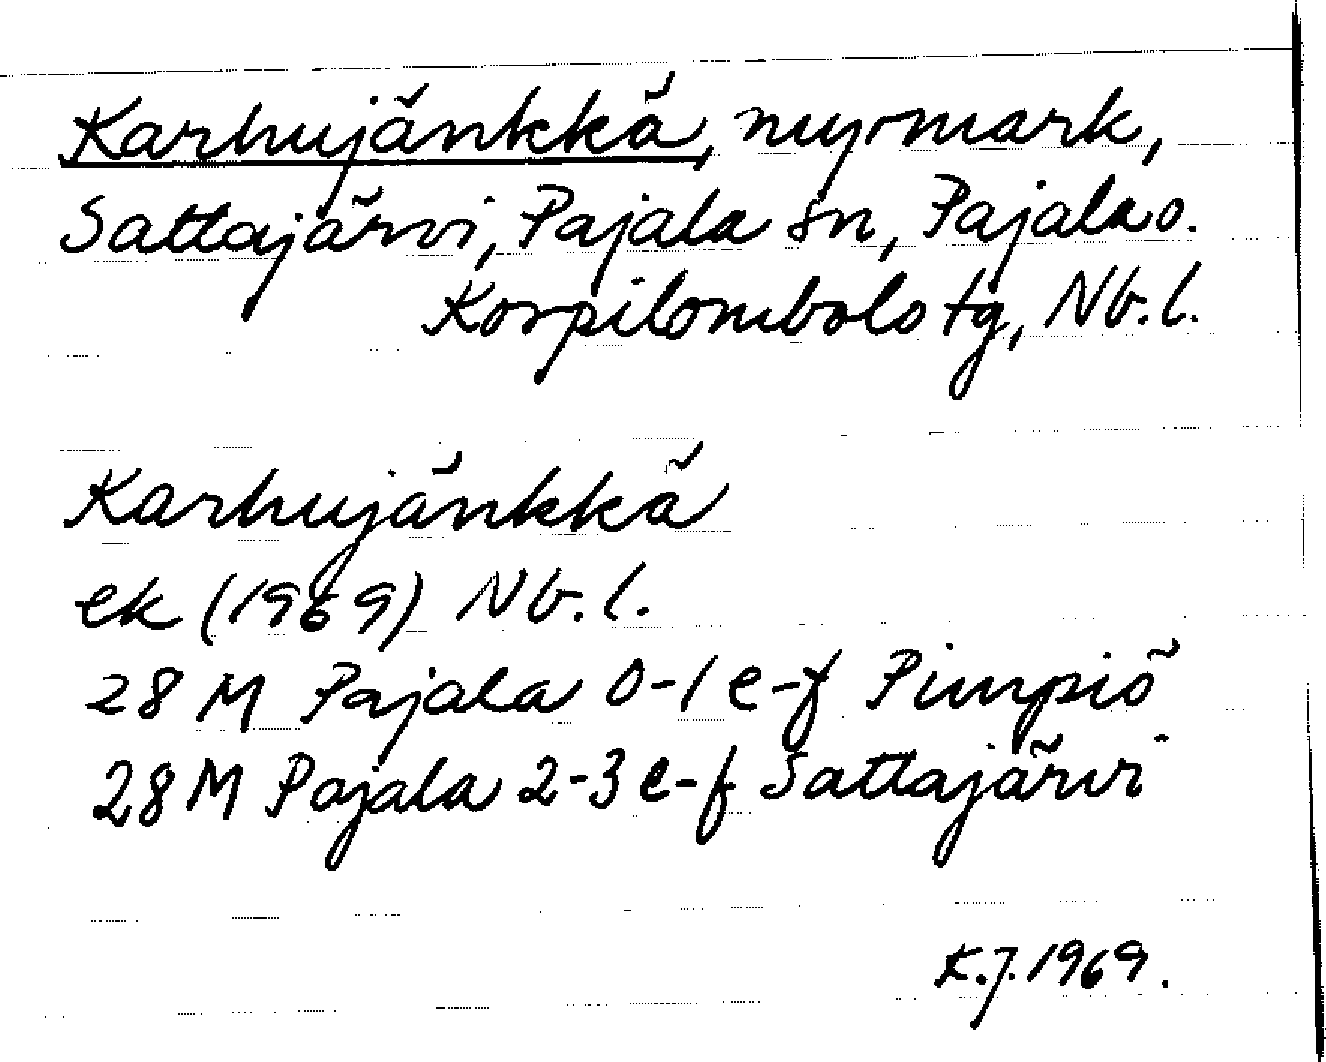 Karhujänkkä, myrmark,
Sattajärvi, Pajala sn, Pajala o.
Korpilombolo tg, Nb. l.
Karhujänkkä
ek (1969) Nb. l.
28 M Pajala 0-1 e-f Pimpiö
28 M Pajala 2-3 e-f Sattajärvi
K.J. 1969.